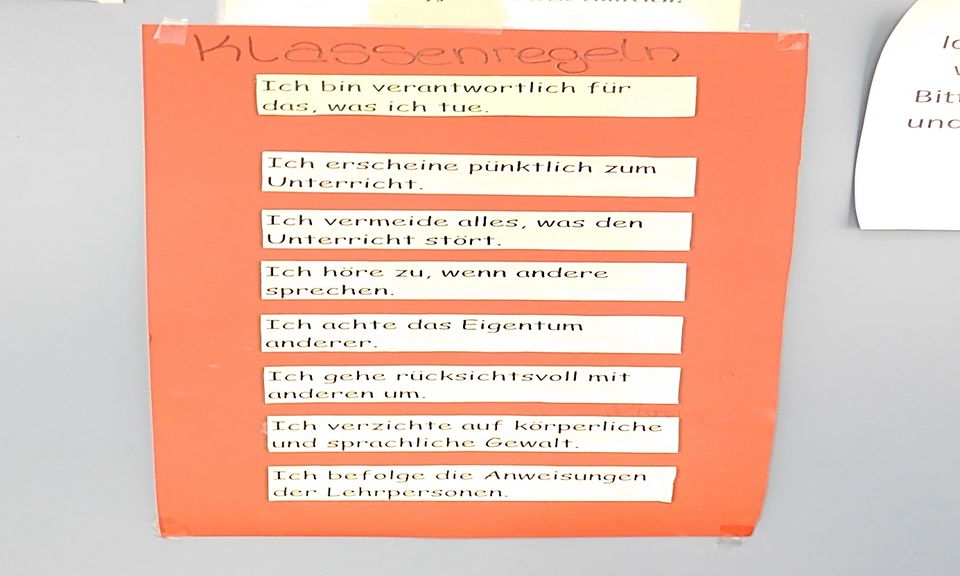 Klassenregeln
Ich bin verantwortlich für
das, was ich tue.
Ich erscheine pünktlich zum
Unterricht.
Ich vermeide alles, was den
Unterricht stört.
Ich höre zu, wenn andere
sprechen.
Ich achte das Eigentum
anderer.
Ich gehe rücksichtsvoll mit
anderen um.
Ich verzichte auf körperliche
und sprachliche Gewalt.
Ich befolge die Anweisungen
der Lehrpersonen.
Bitt
und